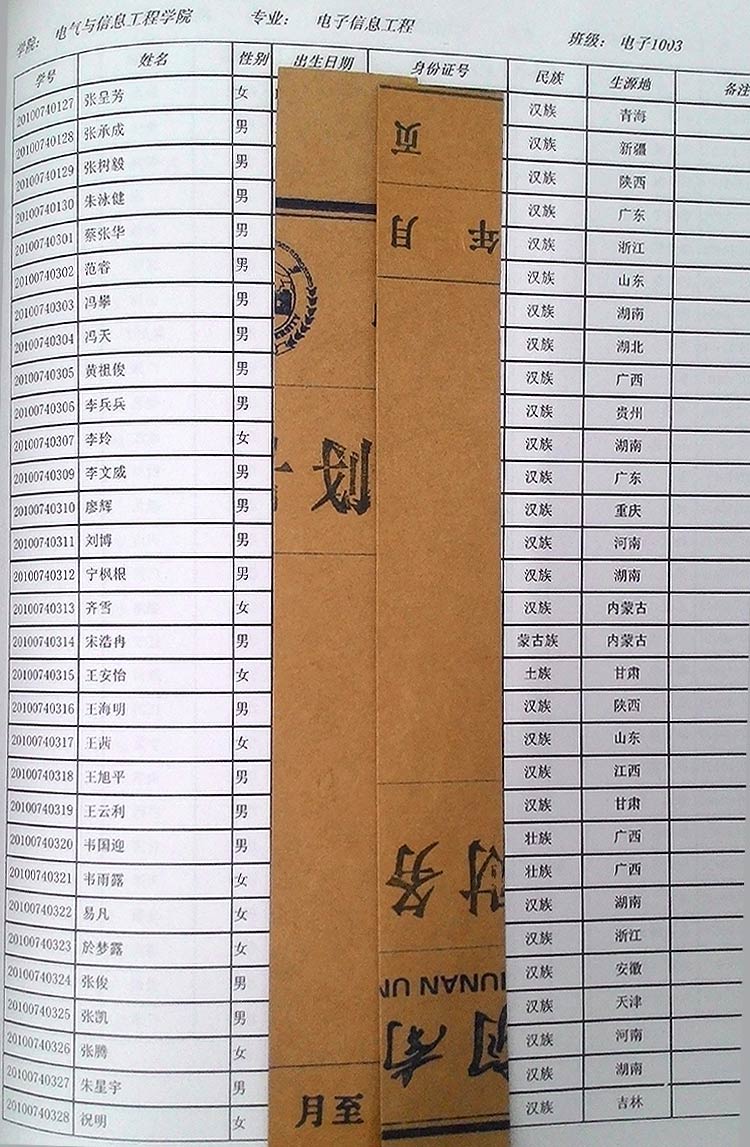 学院： 电气与信息工程学院 专业： 电子信息工程 班级： 电子1003
学号 姓名 性别 出生日期 身份证号 民族 生源地 备注
20100740127 张呈芳 女 汉族 青海
20100740128 张承成 男 汉族 新疆
20100740129 张树毅 男 汉族 陕西
20100740130 朱泳健 男 汉族 广东
20100740301 蔡张华 男 汉族 浙江
20100740302 范睿 男 汉族 山东
20100740303 冯攀 男 汉族 湖南
20100740304 冯天 男 汉族 湖北
20100740305 黄祖俊 男 汉族 广西
20100740306 李兵兵 男 汉族 贵州
20100740307 李玲 女 汉族 湖南
20100740309 李文威 男 汉族 广东
20100740310 廖辉 男 汉族 重庆
20100740311 刘博 男 汉族 河南
20100740312 宁枫根 男 汉族 湖南
20100740313 齐雪 女 汉族 内蒙古
20100740314 宋浩冉 男 蒙古族 内蒙古
20100740315 王安怡 女 土族 甘肃
20100740316 王海明 男 汉族 陕西
20100740317 王茜 女 汉族 山东
20100740318 王旭平 男 汉族 江西
20100740319 王云利 男 汉族 甘肃
20100740320 韦国迎 男 壮族 广西
20100740321 韦雨露 女 壮族 广西
20100740322 易凡 女 汉族 湖南
20100740323 於梦露 女 汉族 浙江
20100740324 张俊 男 汉族 安徽
20100740325 张凯 男 汉族 天津
20100740326 张腾 女 汉族 河南
20100740327 朱星宇 男 汉族 湖南
20100740328 祝明 女 汉族 吉林
页
年 月
财务
HUNAN UN
湖南
月至